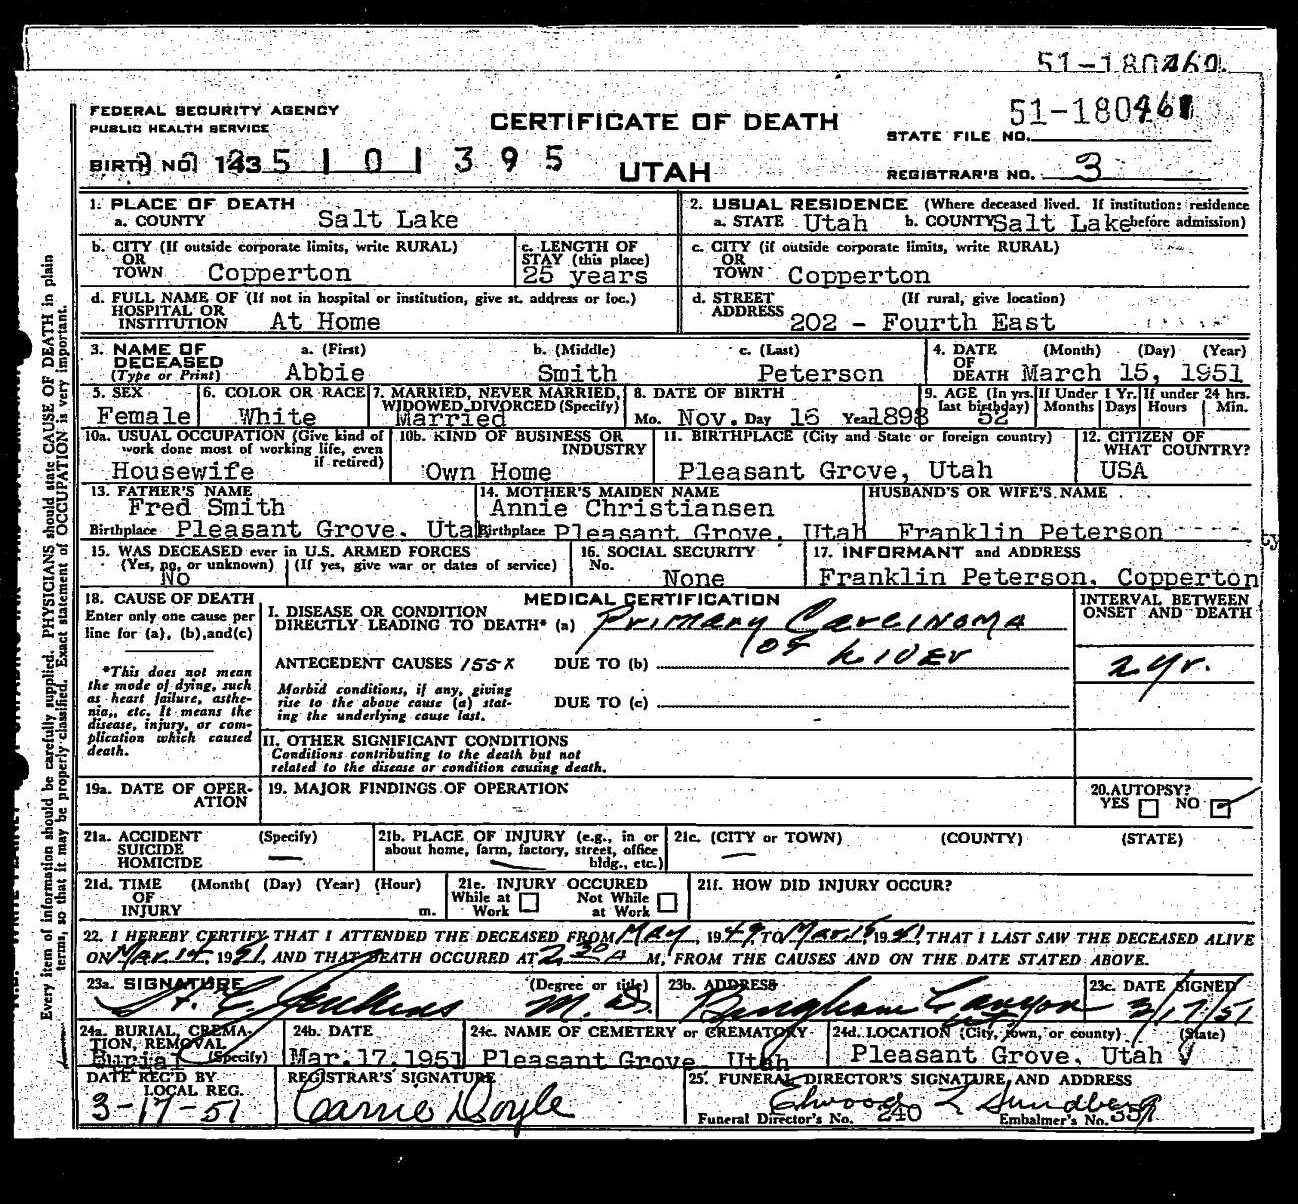 51-180460.
FEDERAL SECURITY AGENCY
PUBLIC HEALTH SERVICE
CERTIFICATE OF DEATH
51-180461
STATE FILE NO.
BIRTH NO. 143 5 1 0 1 3 9 5
UTAH
REGISTRAR'S NO. 3
1. PLACE OF DEATH
a. COUNTY Salt Lake
2. USUAL RESIDENCE (Where deceased lived. If institution: residence
a. STATE Utah b. COUNTY Salt Lake before admission)
b. CITY (If outside corporate limits, write RURAL)
OR
TOWN Copperton
c. LENGTH OF
STAY (this place)
25 years
c. CITY (if outside corporate limits, write RURAL)
OR
TOWN Copperton
d. FULL NAME OF (If not in hospital or institution, give st. address or loc.)
HOSPITAL OR
INSTITUTION At Home
d. STREET (If rural, give location)
ADDRESS
202 - Fourth East
3. NAME OF a. (First) b. (Middle) c. (Last)
DECEASED
(Type or Print) Abbie Smith Peterson
4. DATE (Month) (Day) (Year)
OF
DEATH March 15, 1951
5. SEX
Female
6. COLOR OR RACE
White
7. MARRIED, NEVER MARRIED,
WIDOWED, DIVORCED (Specify)
Married
8. DATE OF BIRTH
Mo. Nov. Day 16 Year 1898
9. AGE (In yrs. last birthday)
52
If Under 1 Yr.
Months Days
If under 24 hrs.
Hours Min.
10a. USUAL OCCUPATION (Give kind of
work done most of working life, even
if retired)
Housewife
10b. KIND OF BUSINESS OR
INDUSTRY
Own Home
11. BIRTHPLACE (City and State or foreign country)
Pleasant Grove, Utah
12. CITIZEN OF
WHAT COUNTRY?
USA
13. FATHER'S NAME
Fred Smith
Birthplace Pleasant Grove, Utah
14. MOTHER'S MAIDEN NAME
Annie Christiansen
Birthplace Pleasant Grove, Utah
HUSBAND'S OR WIFE'S NAME
Franklin Peterson
15. WAS DECEASED ever in U.S. ARMED FORCES
(Yes, no, or unknown) (If yes, give war or dates of service)
No
16. SOCIAL SECURITY
No.
None
17. INFORMANT and ADDRESS
Franklin Peterson, Copperton
18. CAUSE OF DEATH
Enter only one cause per
line for (a), (b), and (c)
*This does not mean
the mode of dying, such
as heart failure, asthe-
nia,, etc. It means the
disease, injury, or com-
plication which caused
death.
MEDICAL CERTIFICATION
I. DISEASE OR CONDITION
DIRECTLY LEADING TO DEATH* (a) Primary Carcinoma
of Liver
ANTECEDENT CAUSES 155X DUE TO (b)
Morbid conditions, if any, giving
rise to the above cause (a) stat-
ing the underlying cause last.
DUE TO (c)
II. OTHER SIGNIFICANT CONDITIONS
Conditions contributing to the death but not
related to the disease or condition causing death.
INTERVAL BETWEEN
ONSET AND DEATH
2 yr.
19a. DATE OF OPER-
ATION
19. MAJOR FINDINGS OF OPERATION
20. AUTOPSY?
YES NO
21a. ACCIDENT (Specify)
SUICIDE
HOMICIDE
21b. PLACE OF INJURY (e.g., in or
about home, farm, factory, street, office
bldg., etc.)
21c. (CITY or TOWN) (COUNTY) (STATE)
21d. TIME (Month( (Day) (Year) (Hour)
OF
INJURY m.
21e. INJURY OCCURED
While at Work Not While at Work
21f. HOW DID INJURY OCCUR?
22. I HEREBY CERTIFY THAT I ATTENDED THE DECEASED FROM May 1949 TO Mar. 15 1951, THAT I LAST SAW THE DECEASED ALIVE
ON Mar. 14 1951, AND THAT DEATH OCCURED AT 2:30 A M., FROM THE CAUSES AND ON THE DATE STATED ABOVE.
23a. SIGNATURE (Degree or title)
Jenkins M.D.
23b. ADDRESS
Bingham Canyon
23c. DATE SIGNED
3/17/51
24a. BURIAL, CREMA-
TION, REMOVAL
Burial (Specify)
24b. DATE
Mar. 17, 1951
24c. NAME OF CEMETERY or CREMATORY
Pleasant Grove, Utah
24d. LOCATION (City, town, or county) (State)
Pleasant Grove, Utah
DATE REC'D BY
LOCAL REG.
3-17-51
REGISTRAR'S SIGNATURE
Carrie Doyle
25. FUNERAL DIRECTOR'S SIGNATURE, AND ADDRESS
Elwood L Sundberg
Funeral Director's No. 240 Embalmer's No. 357
Every item of information should be carefully supplied. PHYSICIANS should state CAUSE OF DEATH in plain
terms, so that it may be properly classified. Exact statement of OCCUPATION is very important.